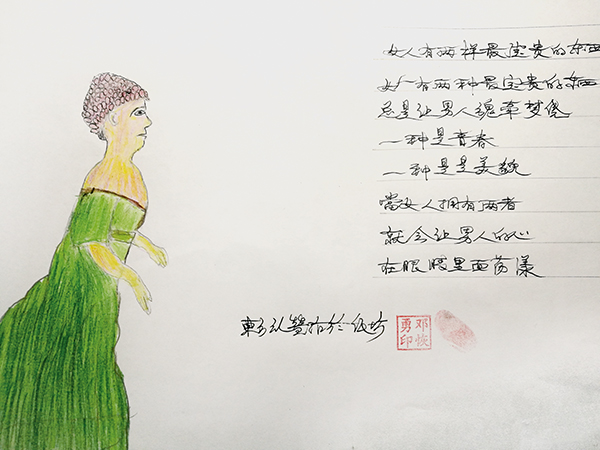 女人有两样最宝贵的东西
女人有两种最宝贵的东西
总是让男人魂牵梦绕
一种是青春
一种是是美貌
當女人拥有两者
就会让男人的心
在眼里面荡漾
邓恢勇印